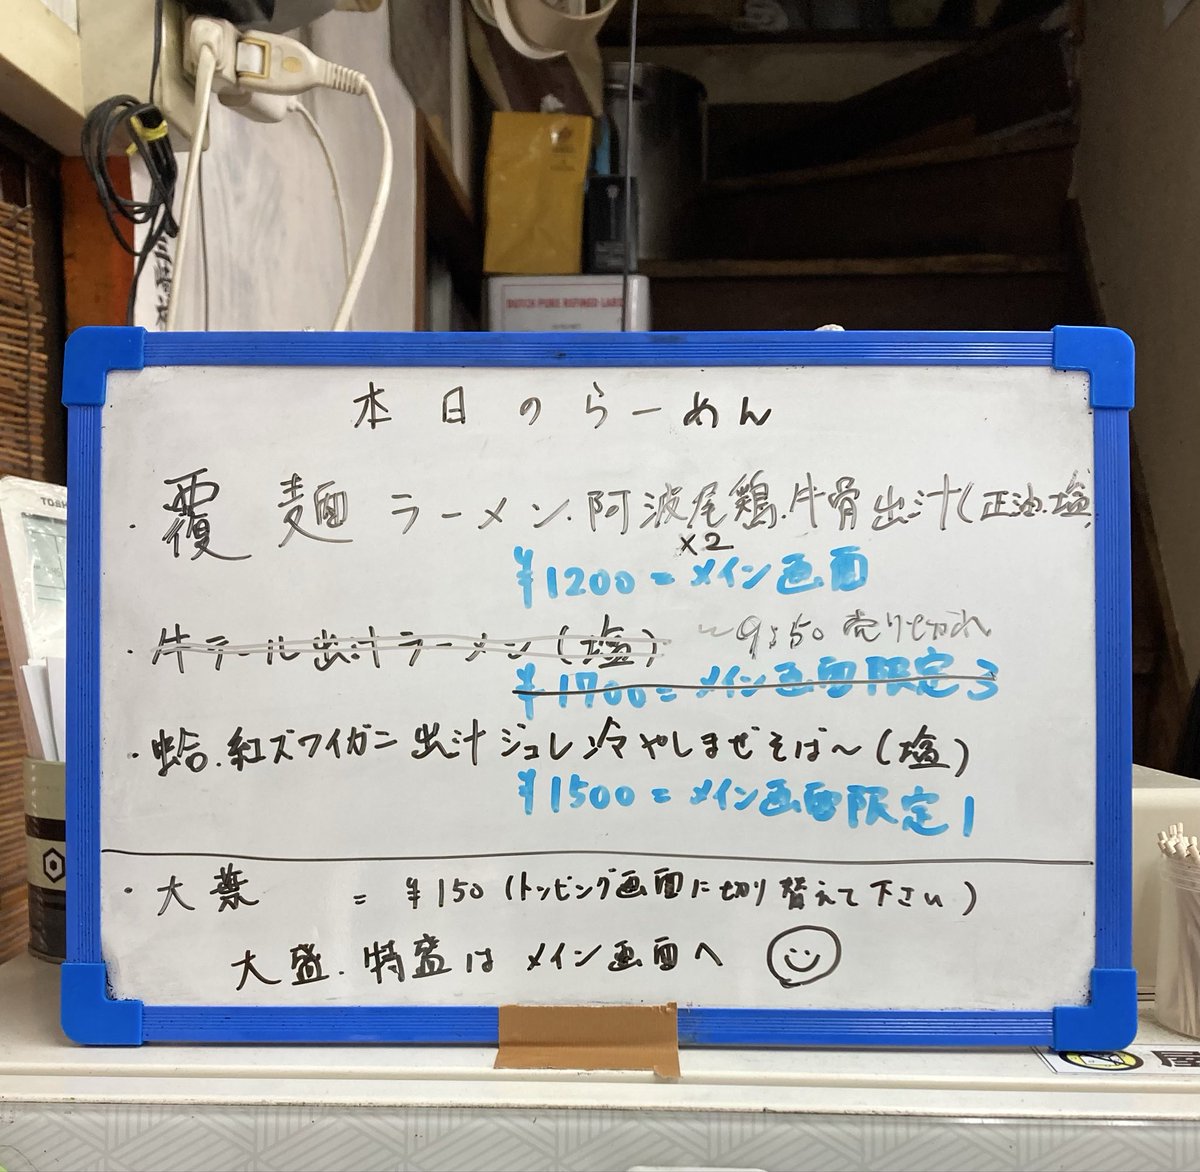 本日のらーめん
・覆麺ラーメン.阿波尾鶏.牛骨出汁(正油.塩)
×2
¥1200=メイン画面
・牛テール出汁ラーメン(塩) 〜9:50 売り切れ
¥1700=メイン画面限定3
・蛤.紅ズワイガニ出汁ジュレ冷やしまぜそば〜(塩)
¥1500=メイン画面限定1
・大葉 = ¥150(トッピング画面に切り替えて下さい)
大盛.特盛はメイン画面へ